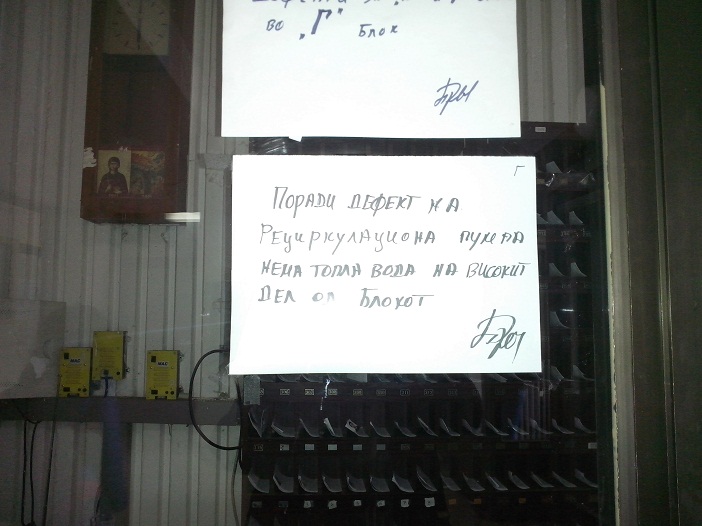 во „Г" блок
Г
Поради дефект на
Рециркулациона пумпа
нема топла вода на високит
дел од Блокот
MAC
MAC